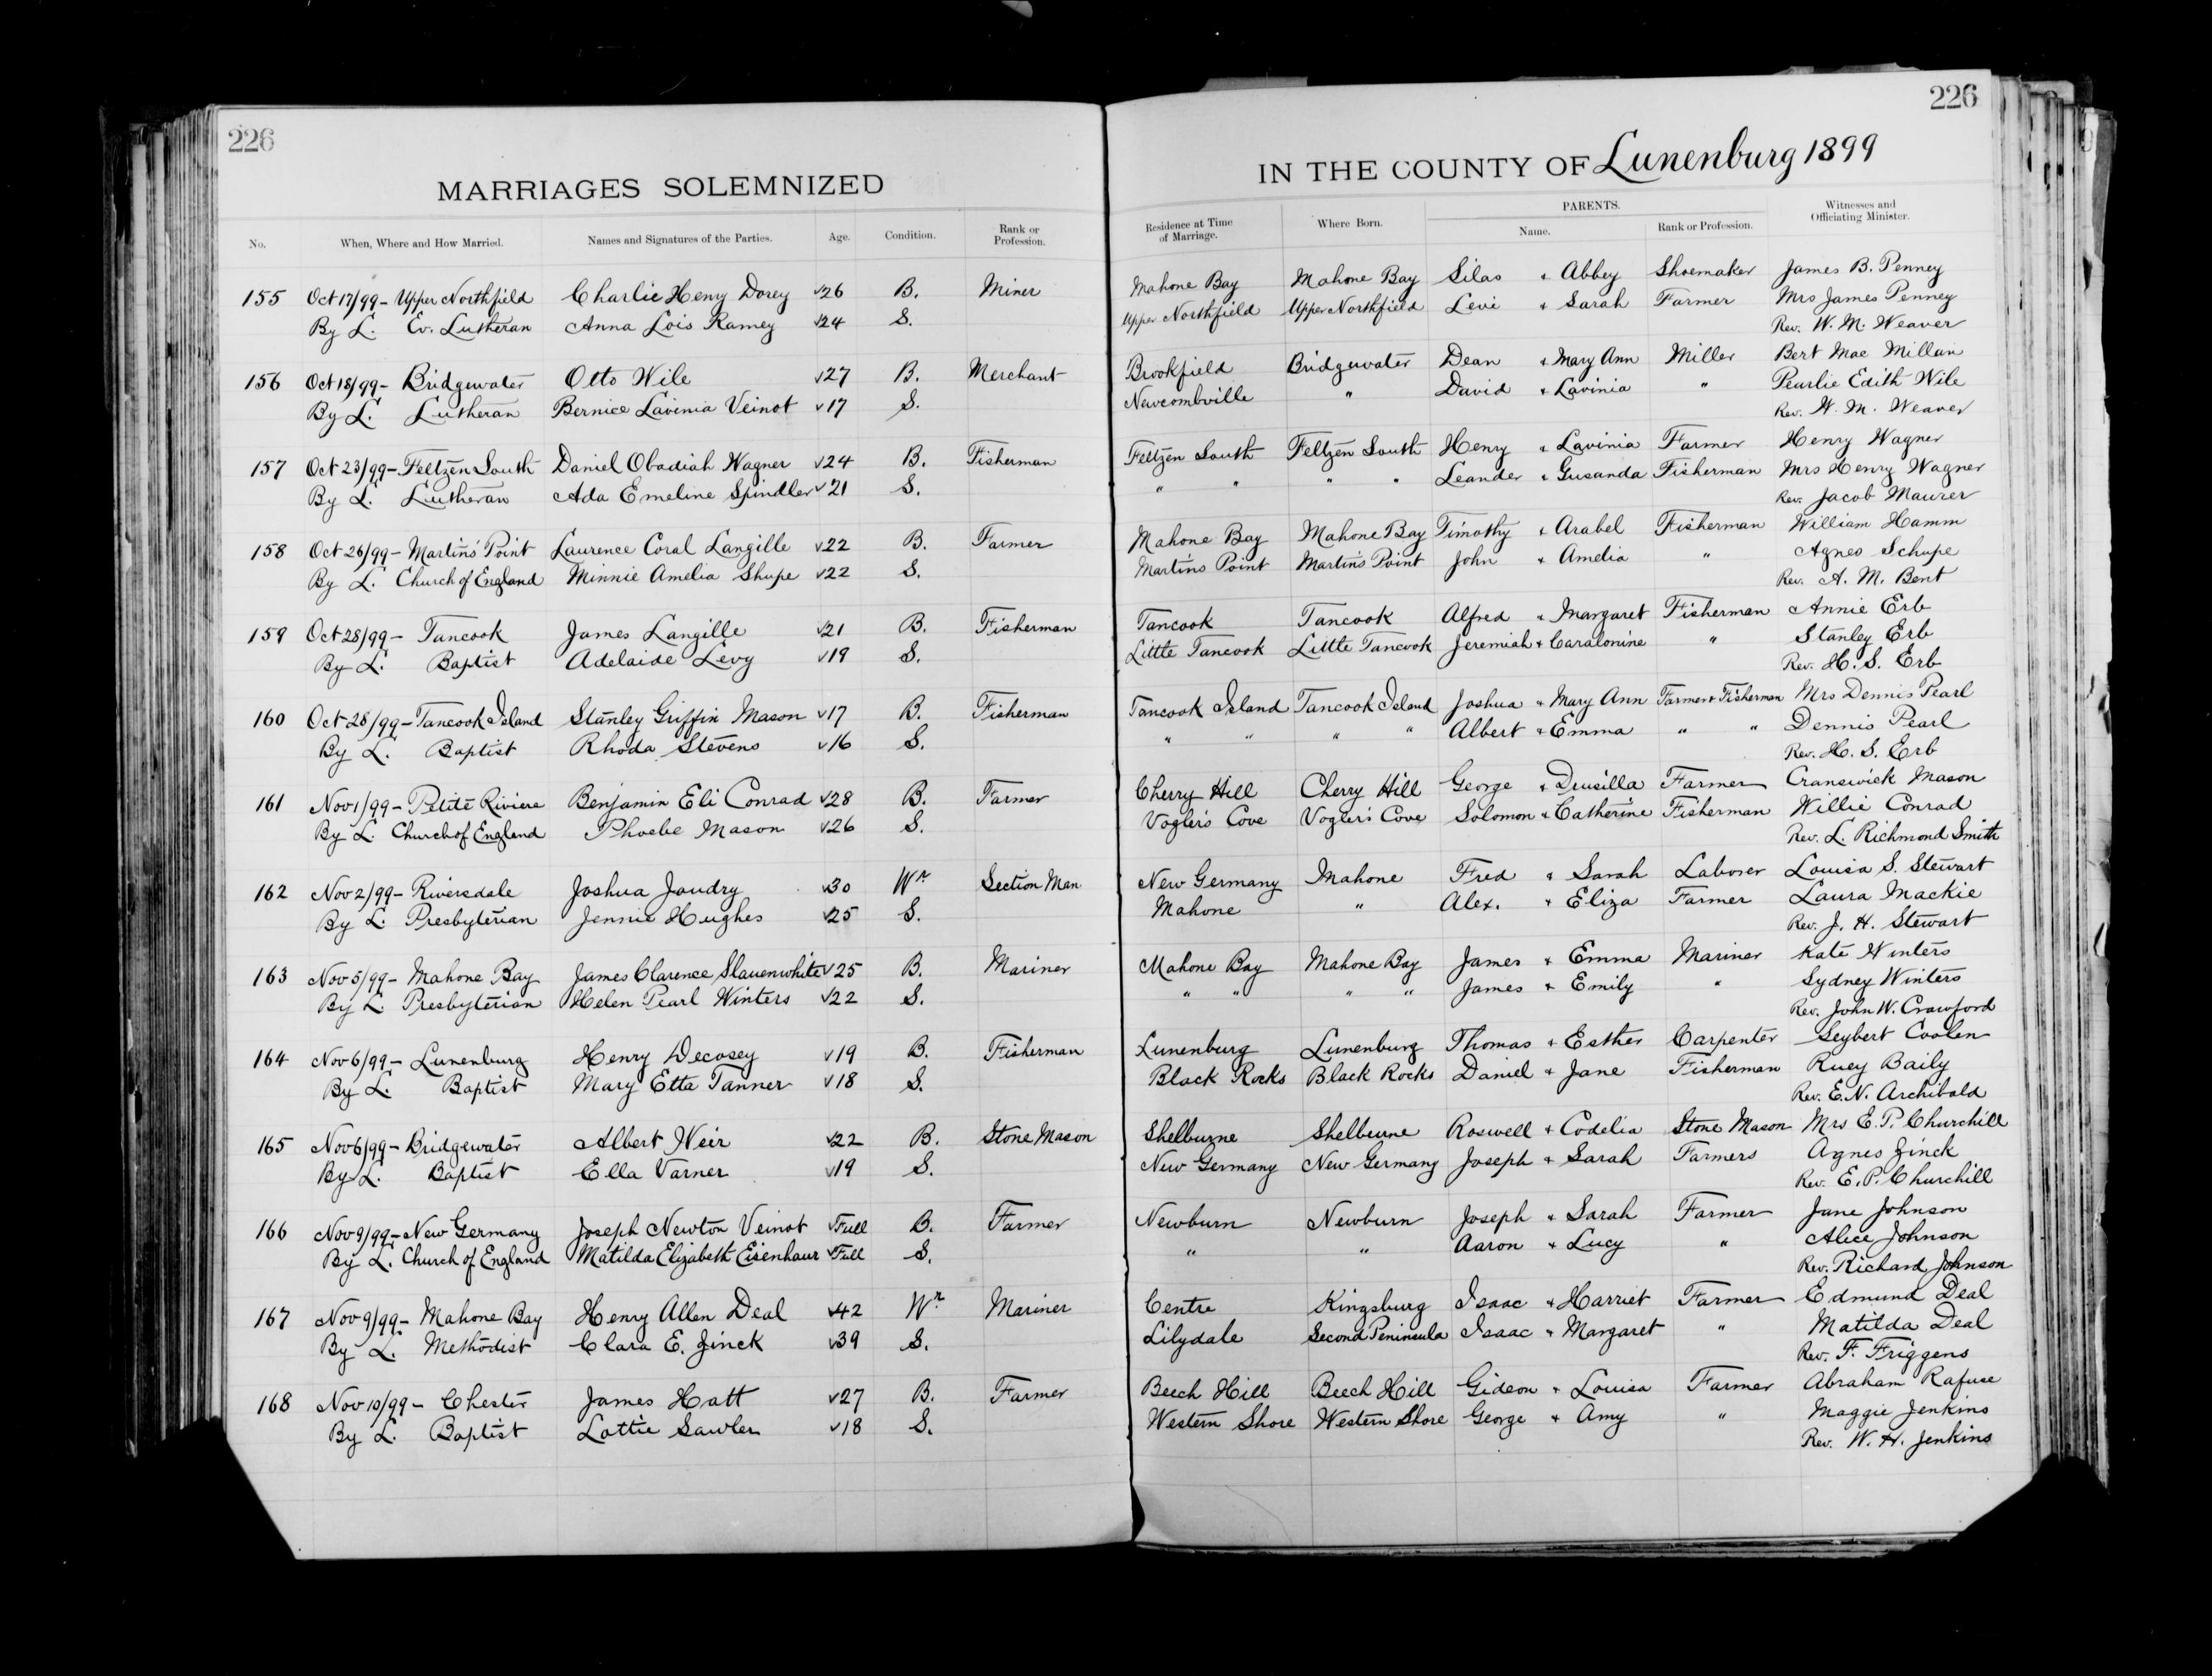 226
MARRIAGES SOLEMNIZED
No. When, Where and How Married. Names and Signatures of the Parties. Age. Condition. Rank or Profession.
155 Oct 17/99 - Upper Northfield Charlie Henry Dorey √26 B. Miner
By L. Ev. Lutheran Anna Lois Ramey √24 S.
156 Oct 18/99 - Bridgewater Otto Wile √27 B. Merchant
By L. Lutheran Bernice Lavinia Veinot √17 S.
157 Oct 23/99 - Feltzen South Daniel Obadiah Wagner √24 B. Fisherman
By L. Lutheran Ada Emeline Spindler √21 S.
158 Oct 26/99 - Martin's Point Laurence Coral Langille √22 B. Farmer
By L. Church of England Minnie Amelia Shupe √22 S.
159 Oct 28/99 - Tancook James Langille √21 B. Fisherman
By L. Baptist Adelaide Levy √19 S.
160 Oct 28/99 - Tancook Island Stanley Griffin Mason √17 B. Fisherman
By L. Baptist Rhoda Stevens √16 S.
161 Nov 1/99 - Petite Riviere Benjamin Eli Conrad √28 B. Farmer
By L. Church of England Phoebe Mason √26 S.
162 Nov 2/99 - Riversdale Joshua Joudry √30 Wr Section Man
By L. Presbyterian Jennie Hughes √25 S.
163 Nov 5/99 - Mahone Bay James Clarence Slauenwhite √25 B. Mariner
By L. Presbyterian Helen Pearl Winters √22 S.
164 Nov 6/99 - Lunenburg Henry Decosey √19 B. Fisherman
By L. Baptist Mary Etta Tanner √18 S.
165 Nov 6/99 - Bridgewater Albert Weir √22 B. Stone Mason
By L. Baptist Ella Varner √19 S.
166 Nov 9/99 - New Germany Joseph Newton Veinot √Full B. Farmer
By L. Church of England Matilda Elizabeth Eisenhaur √Full S.
167 Nov 9/99 - Mahone Bay Henry Allen Deal √42 Wr Mariner
By L. Methodist Clara E. Zinck √39 S.
168 Nov 10/99 - Chester James Hatt √27 B. Farmer
By L. Baptist Lottie Sawler √18 S.
226
IN THE COUNTY OF Lunenburg 1899
Residence at Time of Marriage. Where Born. PARENTS. Name. Rank or Profession. Witnesses and Officiating Minister.
Mahone Bay Mahone Bay Silas & Abbey Shoemaker James B. Penney
Upper Northfield Upper Northfield Levi & Sarah Farmer Mrs James Penney
Rev. W. M. Weaver
Brookfield Bridgewater Dean & Mary Ann Miller Bert Mac Millan
Newcombville " David & Lavinia " Pearlie Edith Wile
Rev. W. M. Weaver
Feltzen South Feltzen South Henry & Lavinia Farmer Henry Wagner
" " " " Leander & Gusanda Fisherman Mrs Henry Wagner
Rev. Jacob Maurer
Mahone Bay Mahone Bay Timothy & Arabel Fisherman William Hamm
Martin's Point Martin's Point John & Amelia " Agnes Schupe
Rev. A. M. Bent
Tancook Tancook Alfred & Margaret Fisherman Annie Erb
Little Tancook Little Tancook Jeremiah & Caralonine " Stanley Erb
Rev. H. S. Erb
Tancook Island Tancook Island Joshua & Mary Ann Farmer & Fisherman Mrs Dennis Pearl
" " " " Albert & Emma " " Dennis Pearl
Rev. H. S. Erb
Cherry Hill Cherry Hill George & Drusilla Farmer Cranswick Mason
Vogler's Cove Vogler's Cove Solomon & Catherine Fisherman Willie Conrad
Rev. L. Richmond Smith
New Germany Mahone Fred & Sarah Laborer Louisa S. Stewart
Mahone " Alex. & Eliza Farmer Laura Mackie
Rev. J. H. Stewart
Mahone Bay Mahone Bay James & Emma Mariner Kate Winters
" " " " James & Emily " Sydney Winters
Rev. John W. Crawford
Lunenburg Lunenburg Thomas & Esther Carpenter Seybert Coolen
Black Rocks Black Rocks Daniel & Jane Fisherman Ruey Baily
Rev. E. N. Archibald
Shelburne Shelburne Roswell & Codelia Stone Mason Mrs E. P. Churchill
New Germany New Germany Joseph & Sarah Farmers Agnes Zinck
Rev. E. P. Churchill
Newburn Newburn Joseph & Sarah Farmer Jane Johnson
" " Aaron & Lucy " Alice Johnson
Rev. Richard Johnson
Centre Kingsburg Isaac & Harriet Farmer Edmund Deal
Lilydale Second Peninsula Isaac & Margaret " Matilda Deal
Rev. F. Friggens
Beech Hill Beech Hill Gideon & Louisa Farmer Abraham Rafuse
Western Shore Western Shore George & Amy " Maggie Jenkins
Rev. W. H. Jenkins